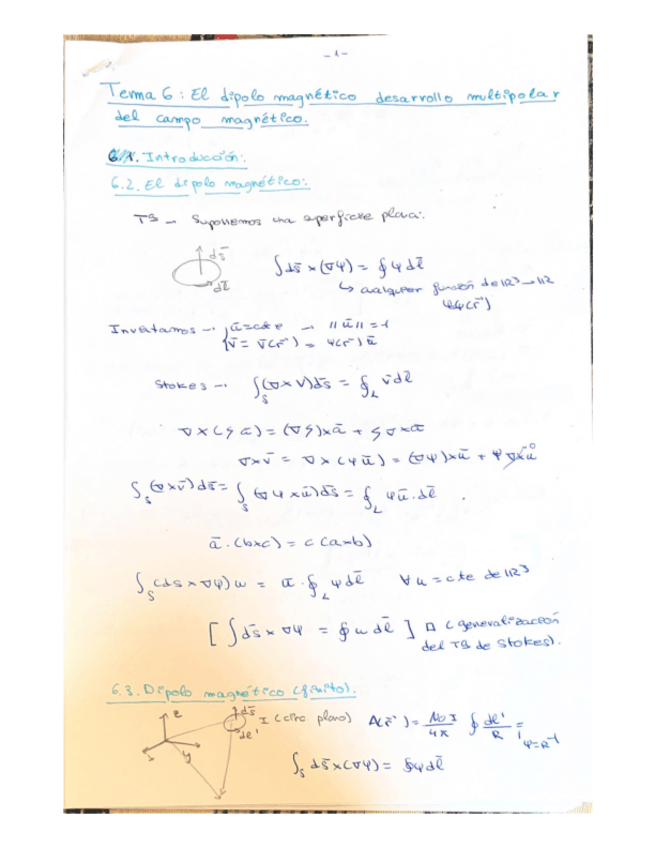 -1-
Tema 6: El dipolo magnético desarrollo multipolar
del campo magnético.
6.1. Introducción:
6.2. El dipolo magnético:
TS → Suponemos una superficie plana:
ds̄
dl̄
∫ds̄ x (∇ψ) = ∮ψ dl̄
↳ cualquier función de IR3 → IR
ψ(r̄)
Inventamos → ū = cte → ||ū|| = 1
v̄ = v̄(r̄) = ψ(r̄) ū
Stokes → ∫_S (∇ x v) ds̄ = ∮_L v̄ dl̄
∇ x (φ ā) = (∇φ) x ā + φ ∇ x ā
∇ x v̄ = ∇ x (ψ ū) = (∇ψ) x ū + ψ ∇ x ū 0
∫_S (∇ x v̄) ds̄ = ∫_S (∇ψ x ū) ds̄ = ∮_L ψ ū · dl̄
ā · (b x c) = c (a x b)
∫_S (ds x ∇ψ) u = ū · ∮_L ψ dl̄ ∀ u = cte de IR3
[ ∫ds̄ x ∇ψ = ∮ u dl̄ ] □ (generalización
del TS de Stokes).
6.3. Dipolo magnético (finito).
z
y
ds̄
dl'
I (circ plano) A(r̄) = μo I / 4π ∮ dl̄' / R =
ψ = R⁻¹
∫_S ds̄ x (∇ψ) = ∮ψ dl̄